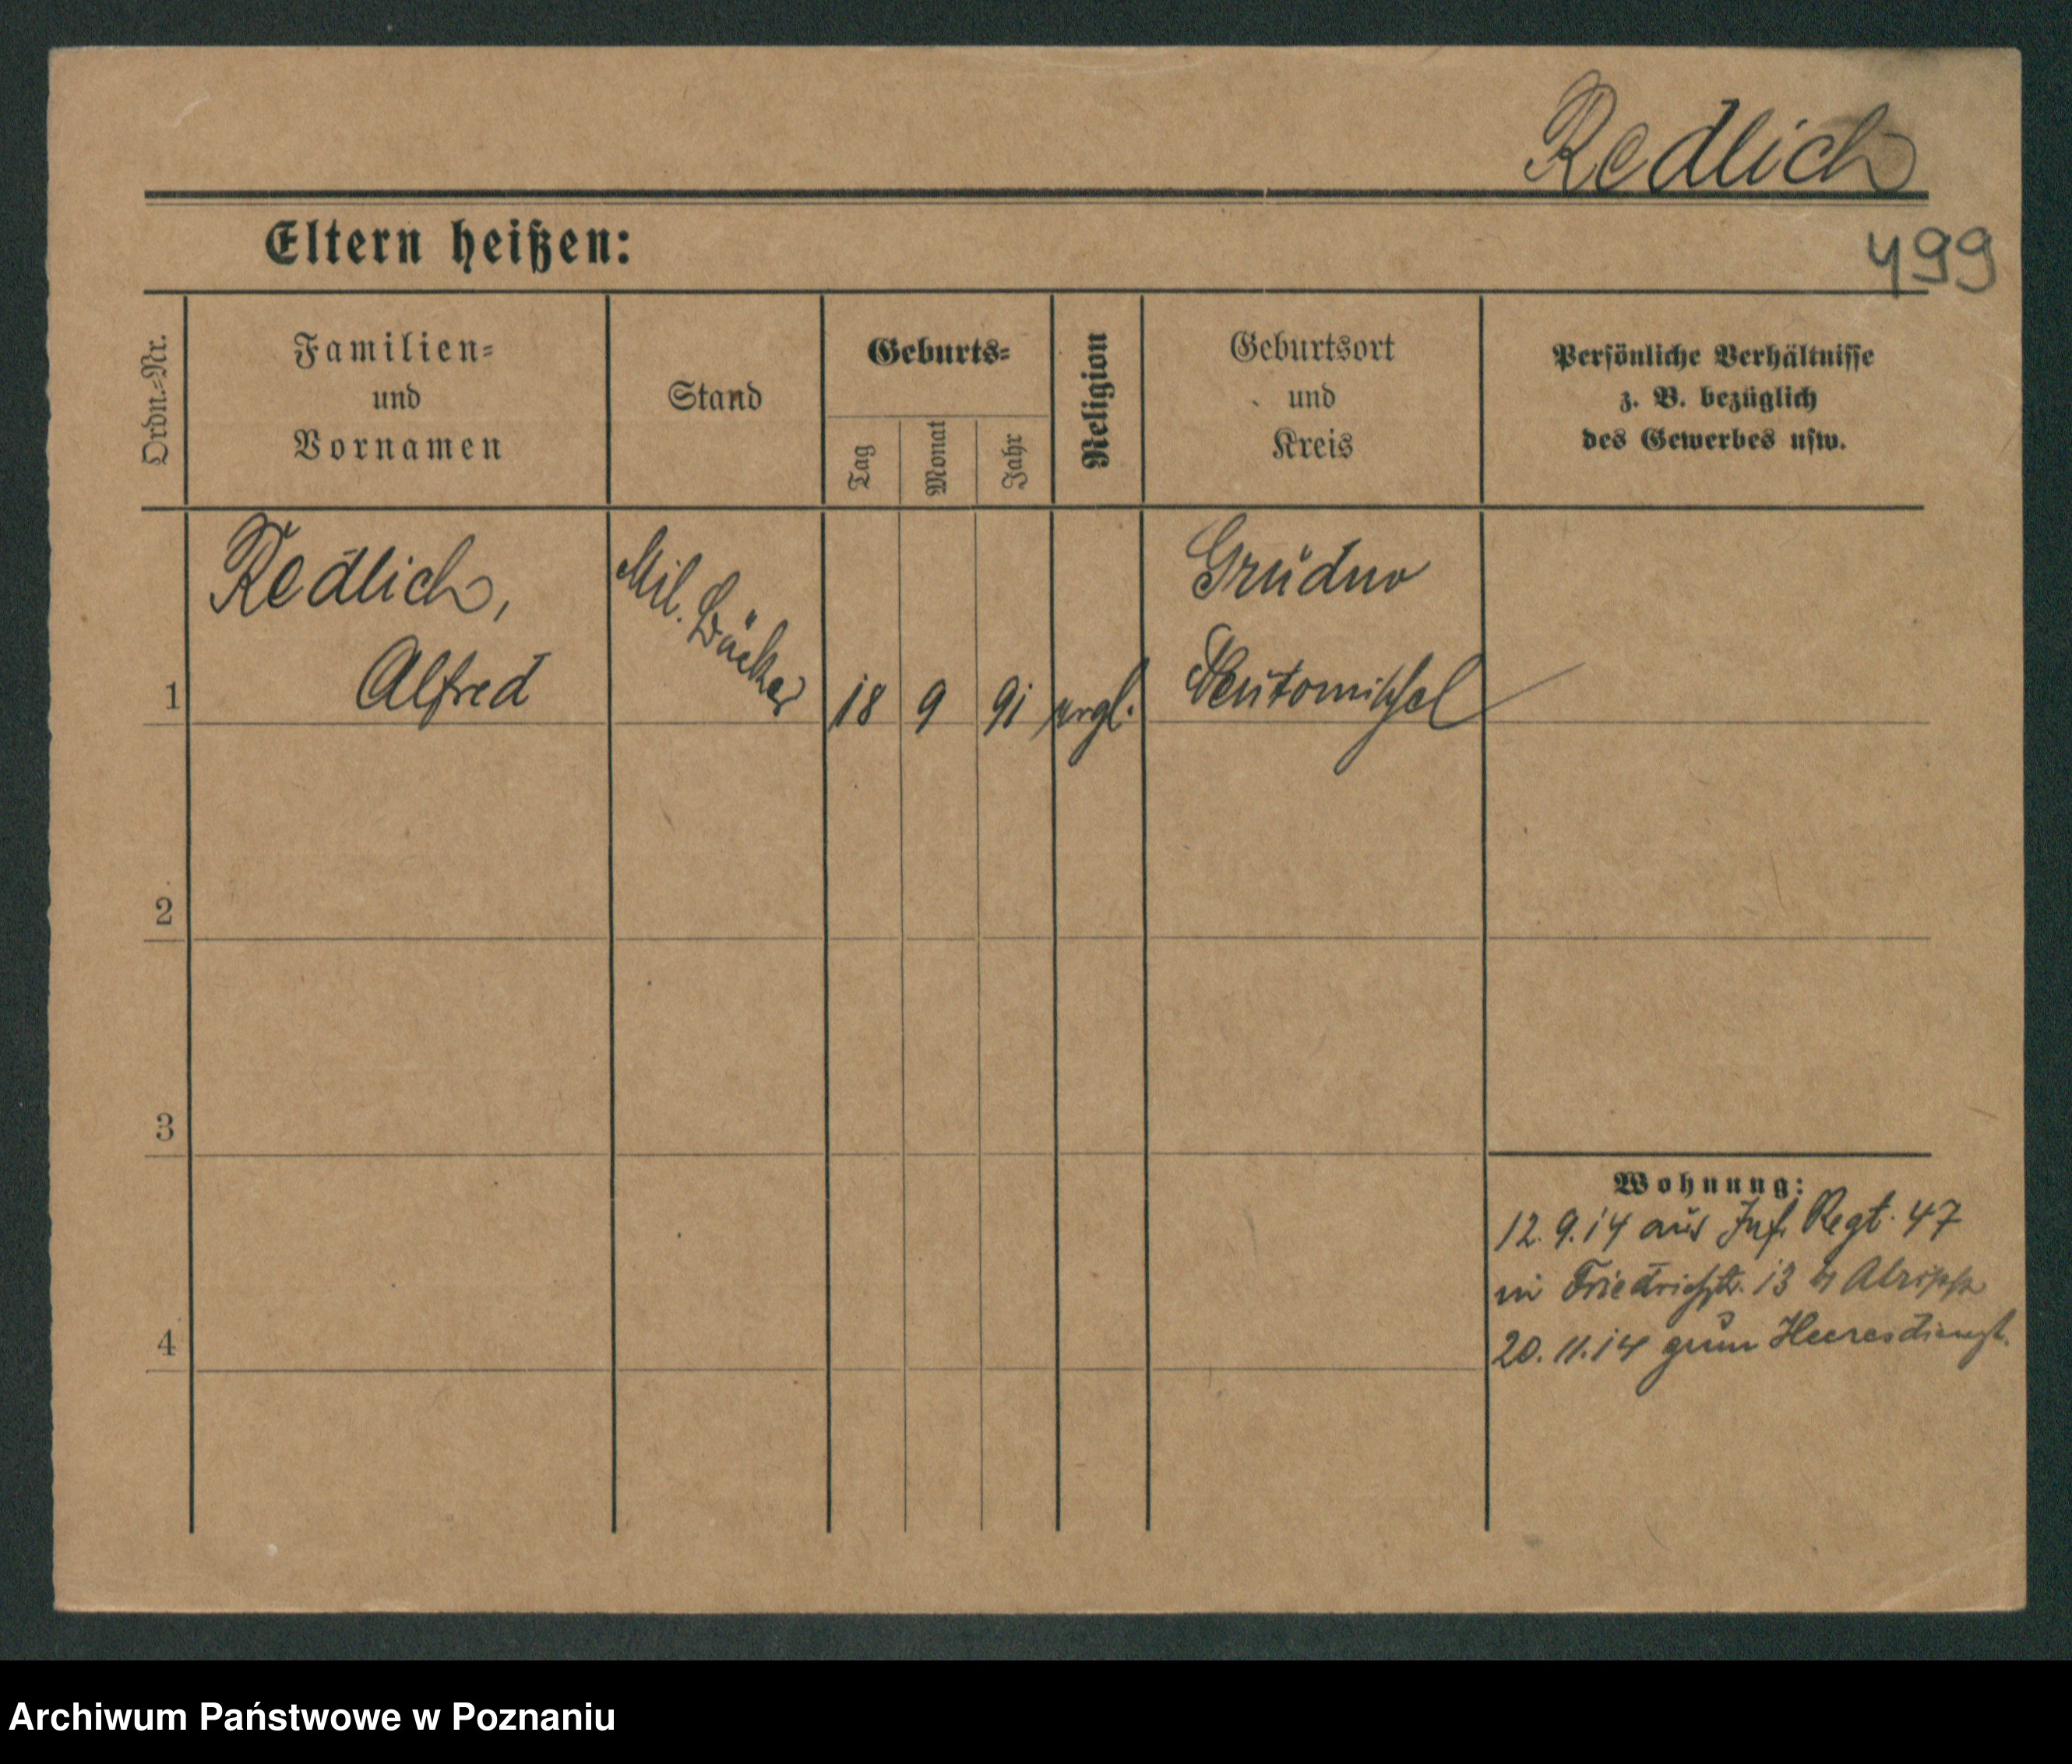 Redlich
Eltern heißen:
499
Ordn.-Nr.
Familien-
und
Vornamen
Stand
Geburts-
Tag
Monat
Jahr
Religion
Geburtsort
und
Kreis
Persönliche Verhältnisse
z. B. bezüglich
des Gewerbes usw.
1
Redlich,
Alfred
Mil. Bäcker
18
9
91
Grudno
Neutomischel
2
3
4
Wohnung:
12. 9. 14 aus Inf. Regt. 47
in Friedrichstr. 13
20. 11. 14 zum Heeresdienst.
Archiwum Państwowe w Poznaniu